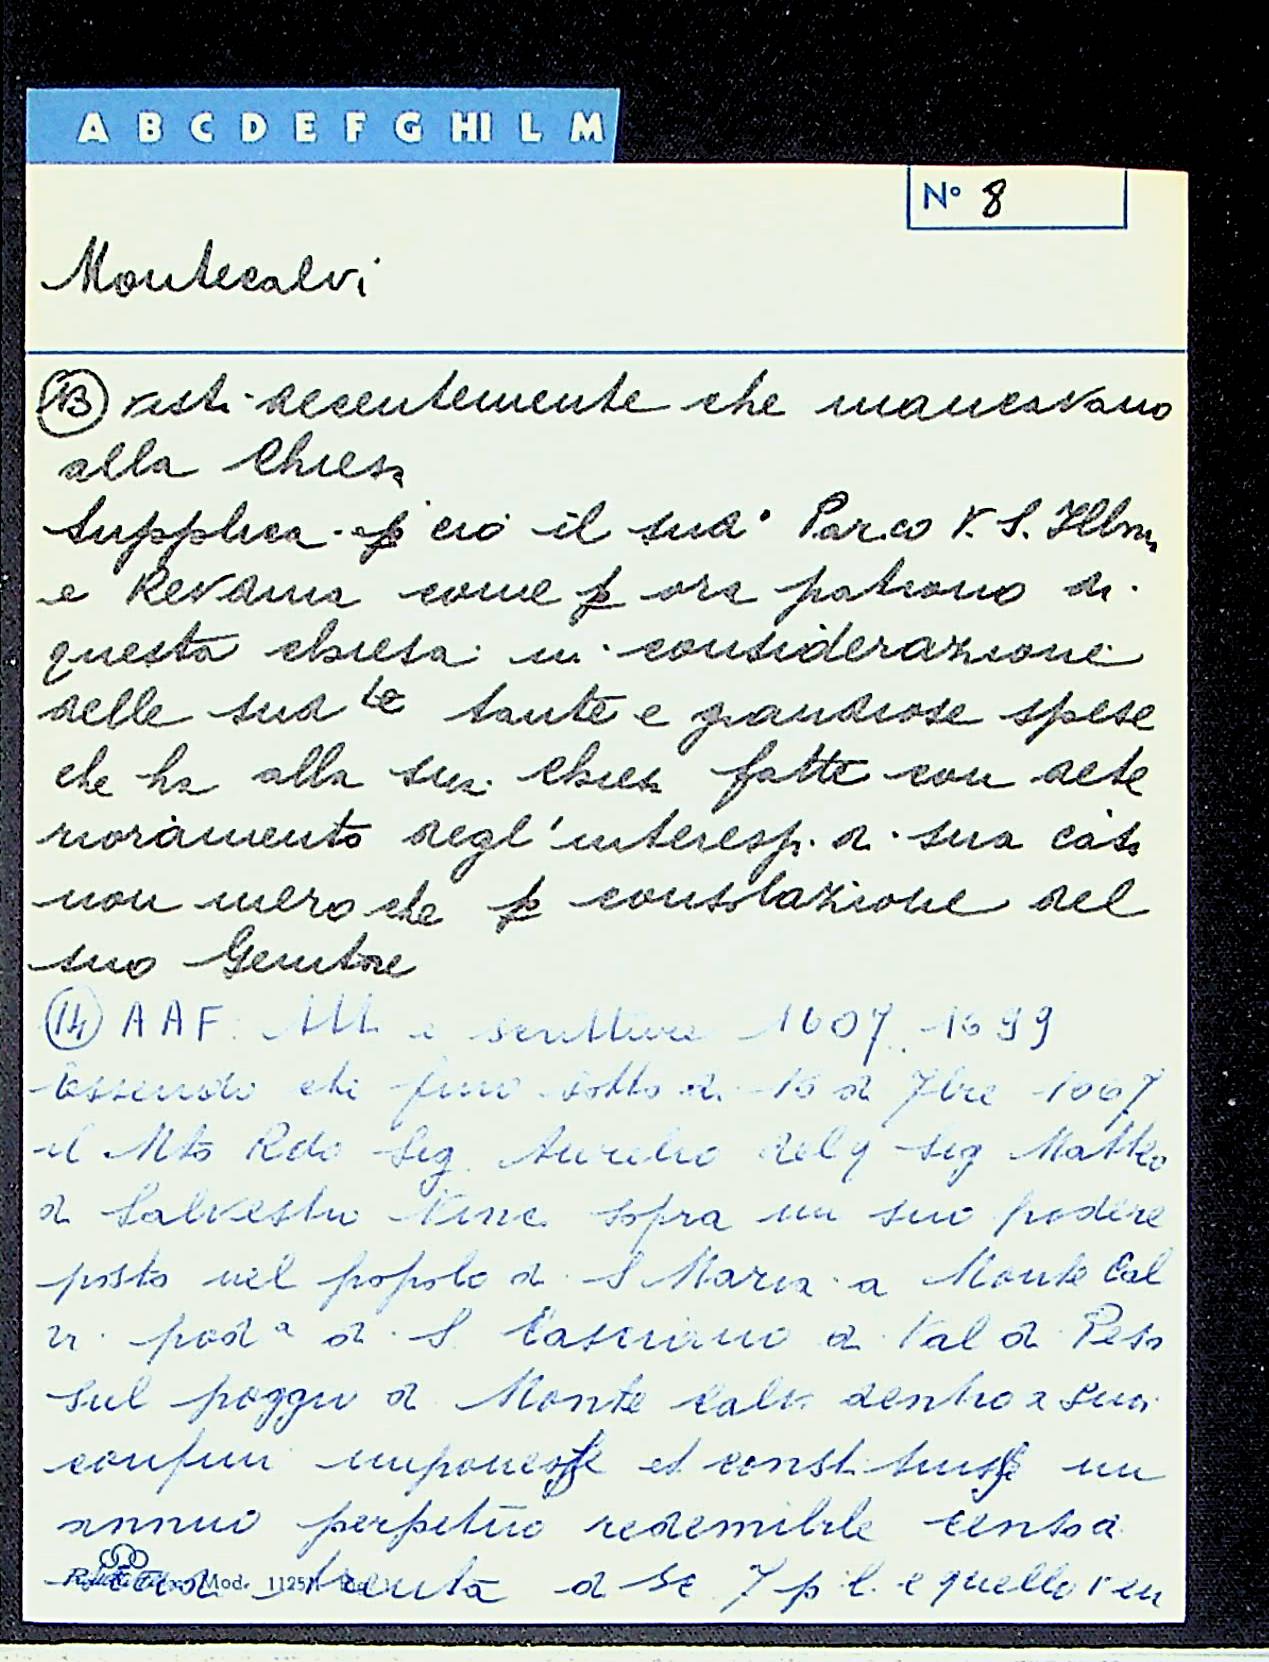 A B C D E F G HI L M
N° 8
Montecalvi
(13) visti decentemente che mancavano
alla Chiesa
Supplica p ciò il sud° Par.co V. S. Illma
e Revdma come p ora patrono di
questa chiesa in considerazione
delle sud te tante e grandiose spese
che ha alla sua Chiesa fatte con dete
rioramento degl'interessi di sua casa
non meno che p consolazione del
suo Genitore
(14) AAF. Atti e scritture 1607 1699
Essendo che fino sotto di 16 di 7bre 1667
il Mto Rdo Sig. Aurelio del q Sig Matteo
di Salvestro sopra un suo podere
posto nel popolo di S Maria a Monte Cal
vi pod a di S Casciano di Val di Pesa
sul poggio di Monte Calvi dentro a suoi
confini imponesse et constituisse un
annuo perpetuo redemibile censo a
Mod. 1125 trenta di sc 7 p l. e quello ven